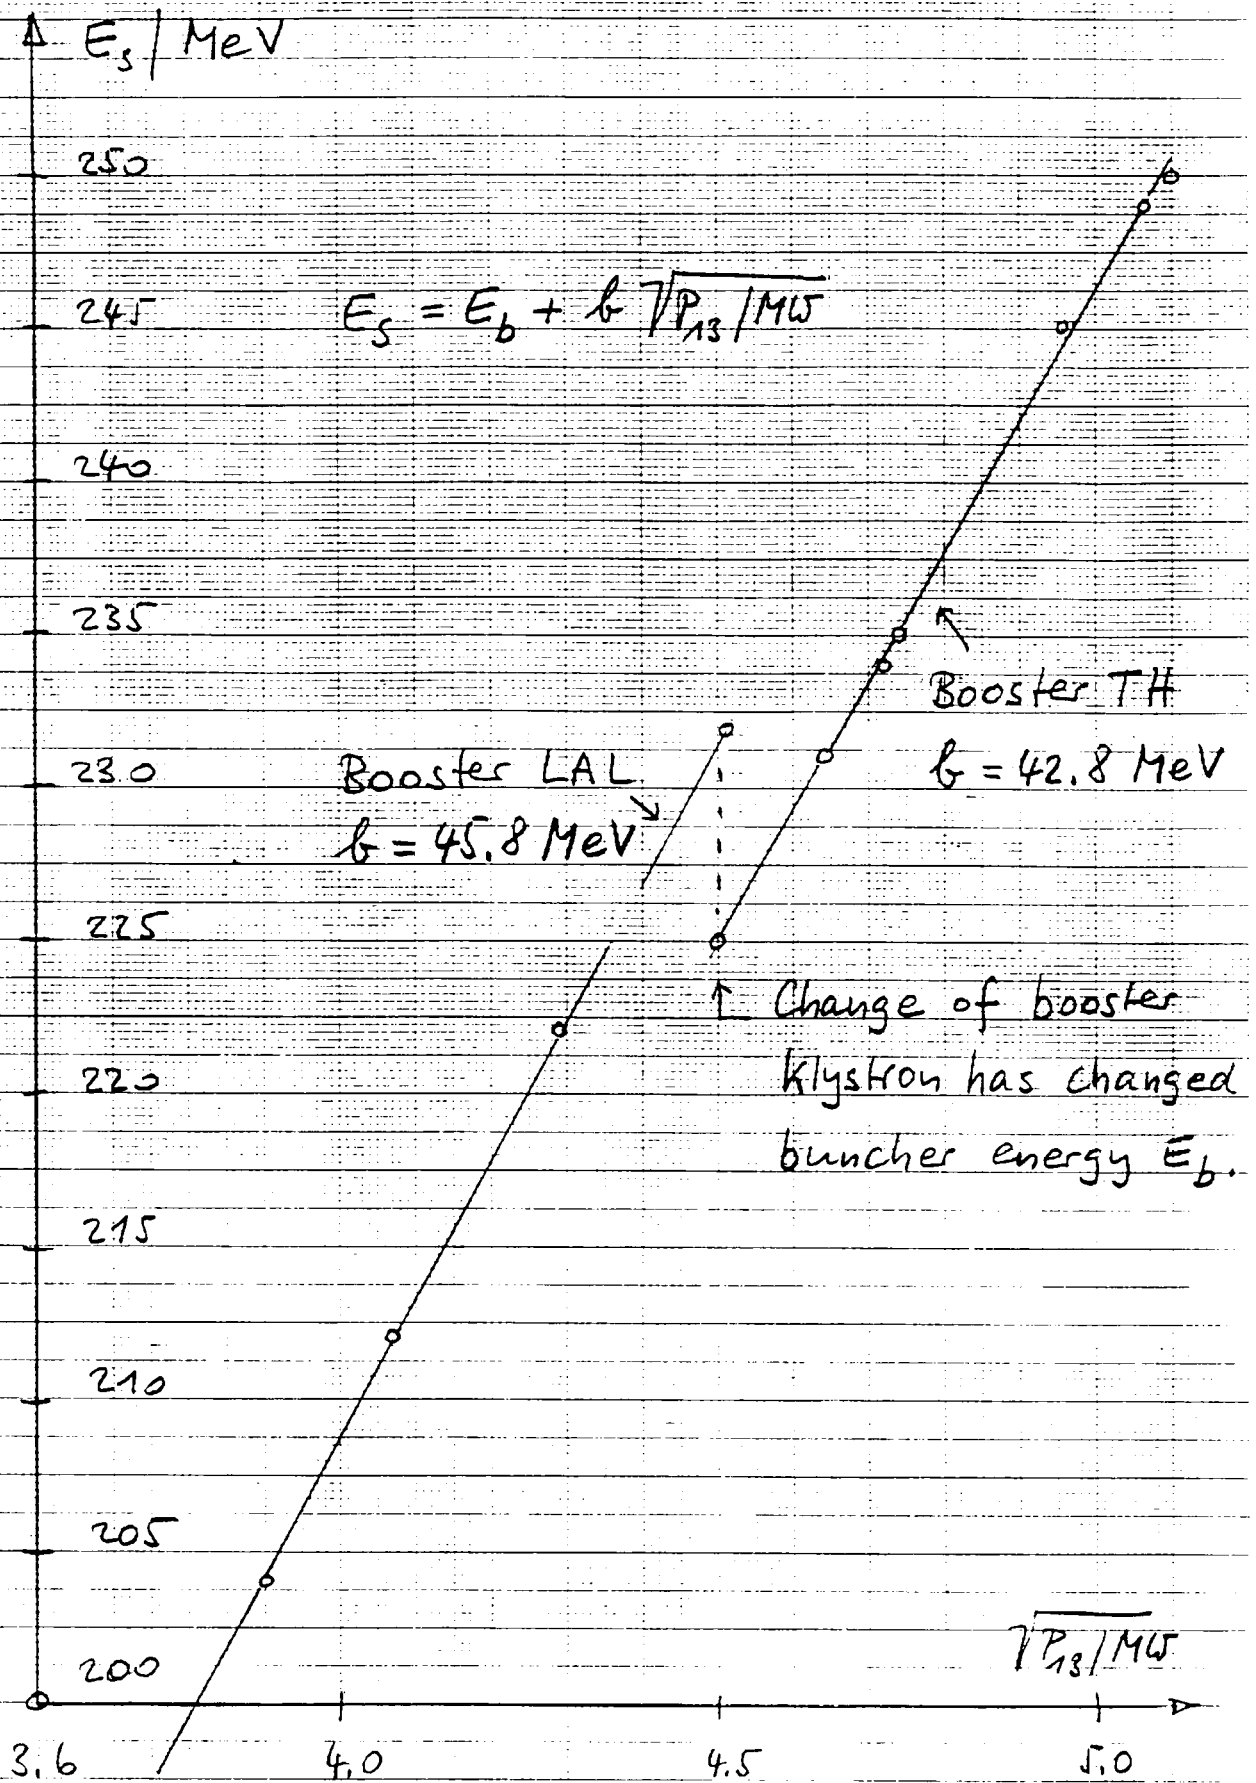 E_s / MeV
250
E_s = E_b + b √P_13/MW
245
240
235
Booster TH
b = 42.8 MeV
Booster LAL
b = 45.8 MeV
230
225
Change of booster
Klystron has changed
buncher energy E_b.
220
215
210
205
200
√P_13/MW
3.6 4.0 4.5 5.0